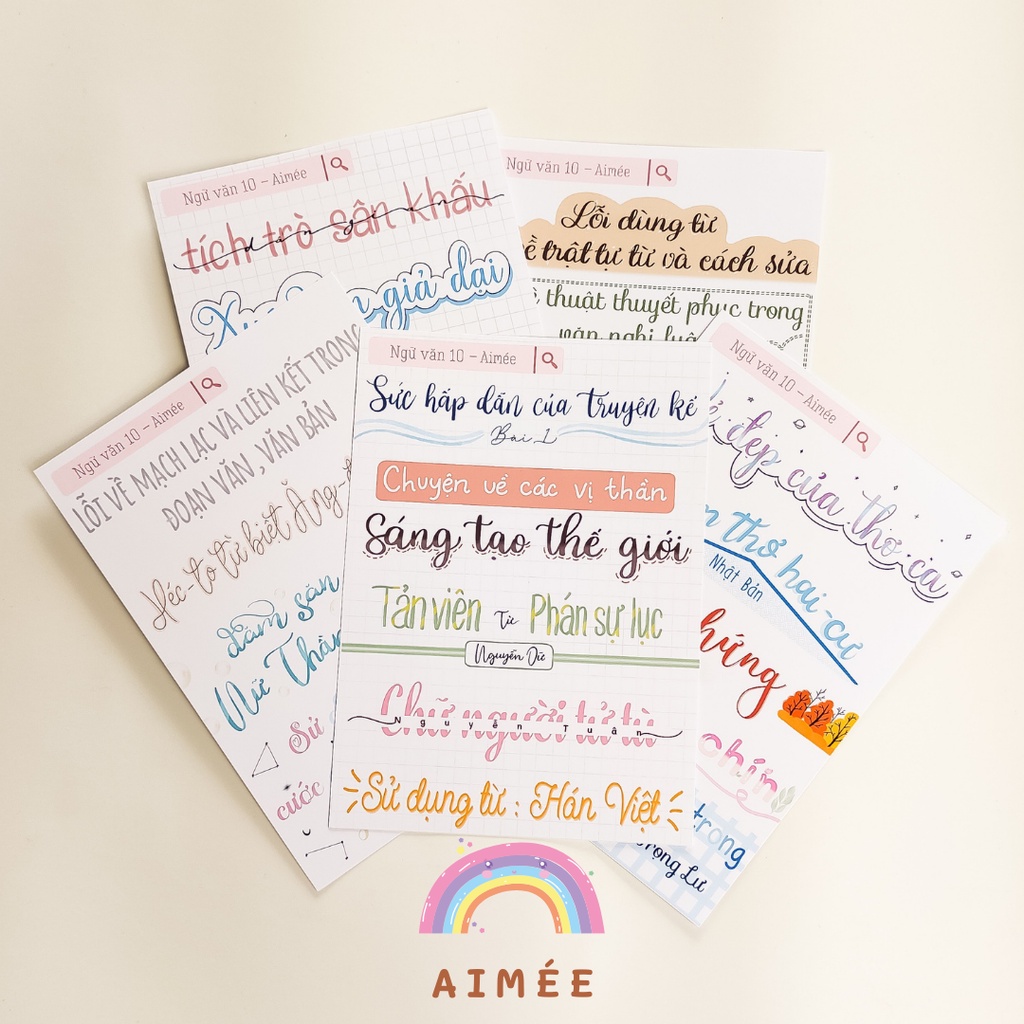 Ngữ văn 10 – Aimée
tích trò sân khấu
dân gian
giả dại
Ngữ văn 10 – Aimée
Lỗi dùng từ
về trật tự từ và cách sửa
thuật thuyết phục trong
văn nghị luận
Ngữ văn 10 – Aimée
LỖI VỀ MẠCH LẠC VÀ LIÊN KẾT TRONG
ĐOẠN VĂN , VĂN BẢN
Héc-to từ biệt Ăng-
Đăm Săn
Nữ Thần
Sử
cước
Ngữ văn 10 – Aimée
Sức hấp dẫn của truyện kể
Bài 1
Chuyện về các vị thần
Sáng tạo thế giới
Tản viên từ Phán sự lục
Nguyễn Dữ
Chữ người tử tù
Nguyễn Tuân
Sử dụng từ : Hán Việt
Ngữ văn 10 – Aimée
đẹp của thơ ca
thơ hai-cư
Nhật Bản
hứng
chín
trong
Trọng Lư
AIMÉE